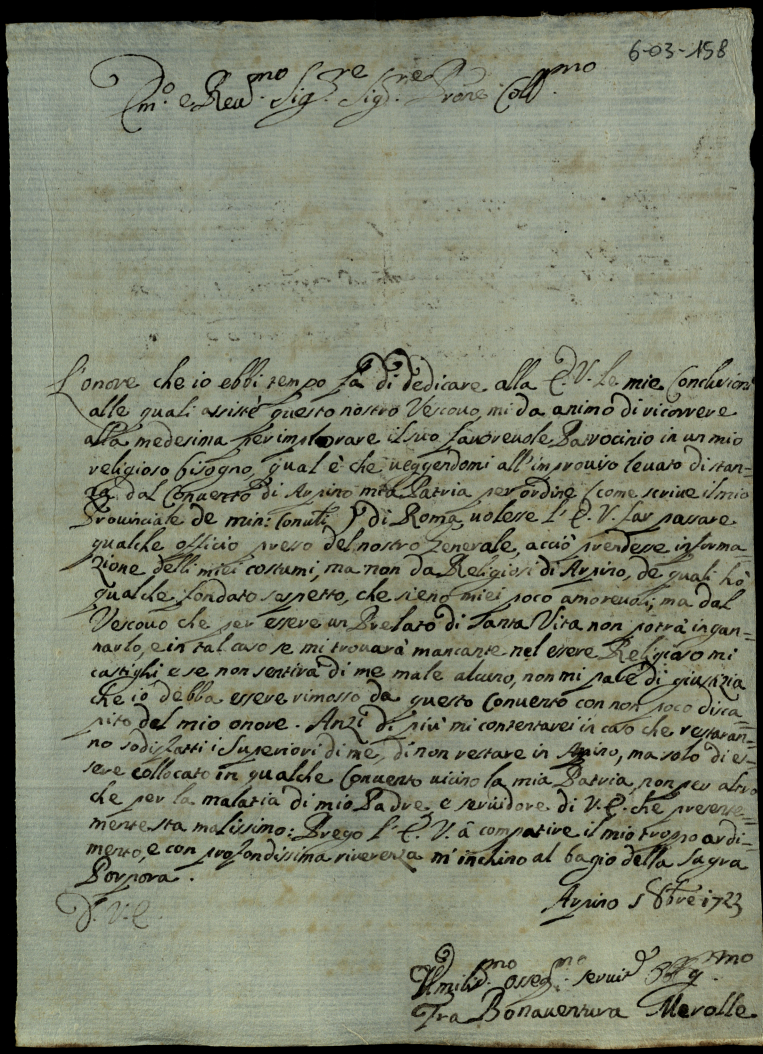 6-03-158
Em.o e Reu.mo Sig.re Sig.re Prone Coll.mo
L'onore che io ebbi tempo fà di dedicare alla E. V. le mie Conclusioni
alle quali assistè questo nostro Vescouo, mi da animo di ricorrere
alla medesima per implorare il suo fauoreuole Patrocinio in un mio
religioso bisogno, qual è che ueggendomi all'improuiso leuato di stan=
za dal Conuento di Arpino mia Patria per ordine (come scriue il mio
Prouinciale de min: Conu.ti) di Roma, uolesse l'E. V. far passare
qualche officio presso del nostro Generale, acciò prendesse informa=
zione delli miei costumi, ma non da Religiosi di Arpino, de quali hò
qualche fondato sospetto, che sieno miei poco amoreuoli; ma dal
Vescouo che per essere un Prelato di Santa Vita non potrà ingan=
narlo, e in tal caso se mi trouarà mancante nel essere Religioso mi
castighi, e se non sentirà di me male alcuno, non mi pare di giustizia
che io debba essere rimosso da questo Conuento con non poco disca=
pito del mio onore. Anzi di più mi contentarei in caso che restaran=
no sodisfatti i Superiori di me, di non restare in Arpino, ma solo di es=
sere collocato in qualche Conuento uicino la mia Patria, non per altro
che per la malatia di mio Padre, e seruidore di V. E. che presente=
mente sta malissimo: Prego l'E. V. à compatire il mio troppo ardi=
mento, e con profondissima riuerenza m'inchino al bagio della Sagra
Porpora.
Arpino 5 8bre 1723
D. V. E.
Umiliss.mo osseq.mo seruid.e obblig.mo
Fra Bonauentura Merolle